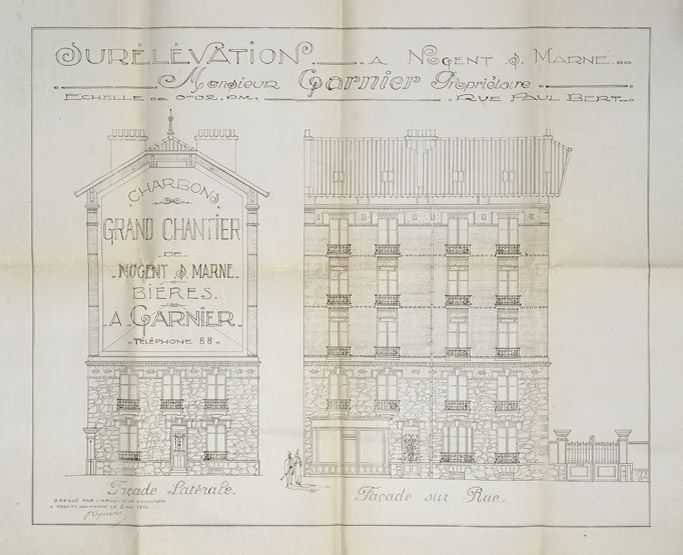 SURÉLÉVATION A NOGENT S. MARNE
Monsieur Garnier Propriétaire
ECHELLE DE 0-02. P.M. RUE PAUL BERT
CHARBONS
GRAND CHANTIER
DE
NOGENT S. MARNE
BIÉRES.
A. GARNIER
TÉLÉPHONE 88
Façade Latérale.
Façade sur Rue.
DRESSÉ PAR L'ARCHITECTE
A NOGENT SUR MARNE LE 2 MAI